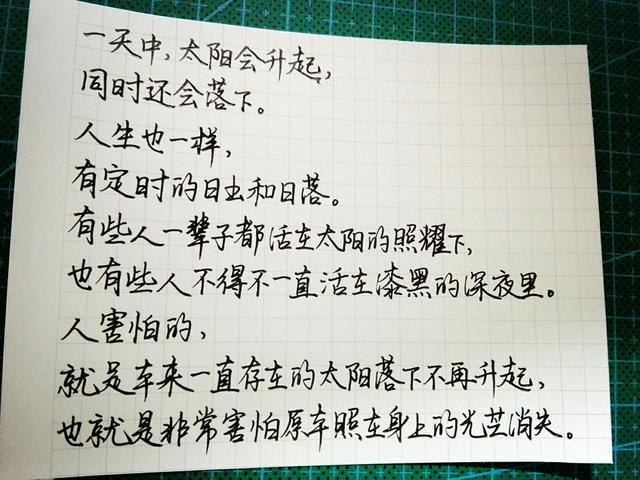 一天中,太阳会升起,
同时还会落下。
人生也一样,
有定时的日出和日落。
有些人一辈子都活在太阳的照耀下,
也有些人不得不一直活在漆黑的深夜里。
人害怕的,
就是本来一直存在的太阳落下不再升起,
也就是非常害怕原本照在身上的光芒消失。